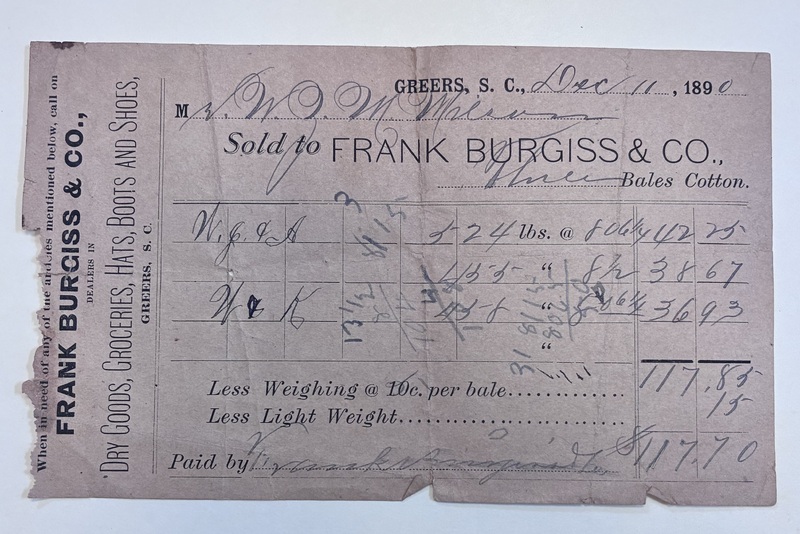 When in need of any of the articles mentioned below, call on
FRANK BURGISS & CO.,
DEALERS IN
DRY GOODS, GROCERIES, HATS, BOOTS AND SHOES,
GREERS, S. C.
GREERS, S. C., Dec 11, 1890
M r. W. J. M Wilson
Sold to FRANK BURGISS & CO.,
Three Bales Cotton.
W. J. & A 524 lbs. @ 8 06¼ 42 25
455 " 8½ 38 67
W & K 458 " 8 06¼ 36 93
"
117.85
Less Weighing @ 10c. per bale 15
Less Light Weight
Paid by Frank Burgiss & Co $117.70